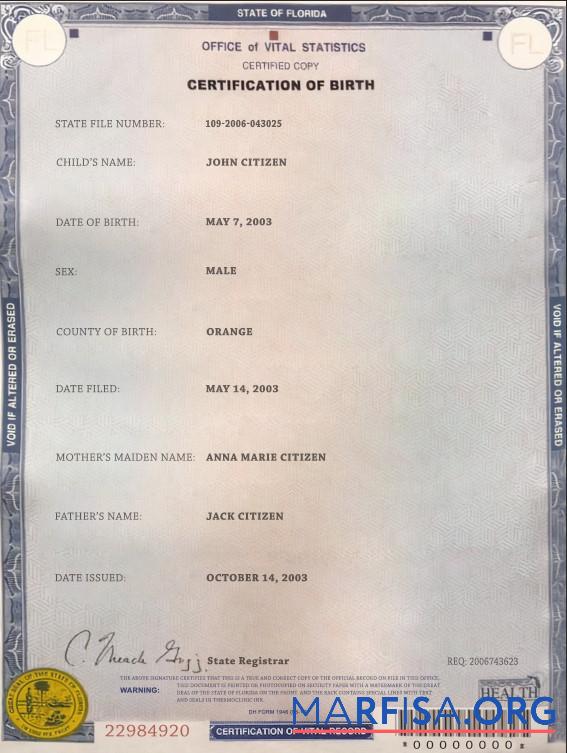 STATE OF FLORIDA
FL
FL
OFFICE of VITAL STATISTICS
CERTIFIED COPY
CERTIFICATION OF BIRTH
STATE FILE NUMBER: 109-2006-043025
CHILD'S NAME: JOHN CITIZEN
DATE OF BIRTH: MAY 7, 2003
SEX: MALE
COUNTY OF BIRTH: ORANGE
DATE FILED: MAY 14, 2003
MOTHER'S MAIDEN NAME: ANNA MARIE CITIZEN
FATHER'S NAME: JACK CITIZEN
DATE ISSUED: OCTOBER 14, 2003
VOID IF ALTERED OR ERASED
VOID IF ALTERED OR ERASED
State Registrar
REQ: 2006743623
THE ABOVE SIGNATURE CERTIFIES THAT THIS IS A TRUE AND CORRECT COPY OF THE OFFICIAL RECORD ON FILE IN THIS OFFICE.
WARNING: THIS DOCUMENT IS PRINTED OR PHOTOCOPIED ON SECURITY PAPER WITH A WATERMARK OF THE GREAT
SEAL OF THE STATE OF FLORIDA ON THE FRONT, AND THE BACK CONTAINS SPECIAL LINES WITH TEXT
AND SEALS IN THERMOCHROMIC INK.
HEALTH
DH FORM 1946
MARFISA.ORG
22984920
CERTIFICATION OF VITAL RECORD
*000000000*